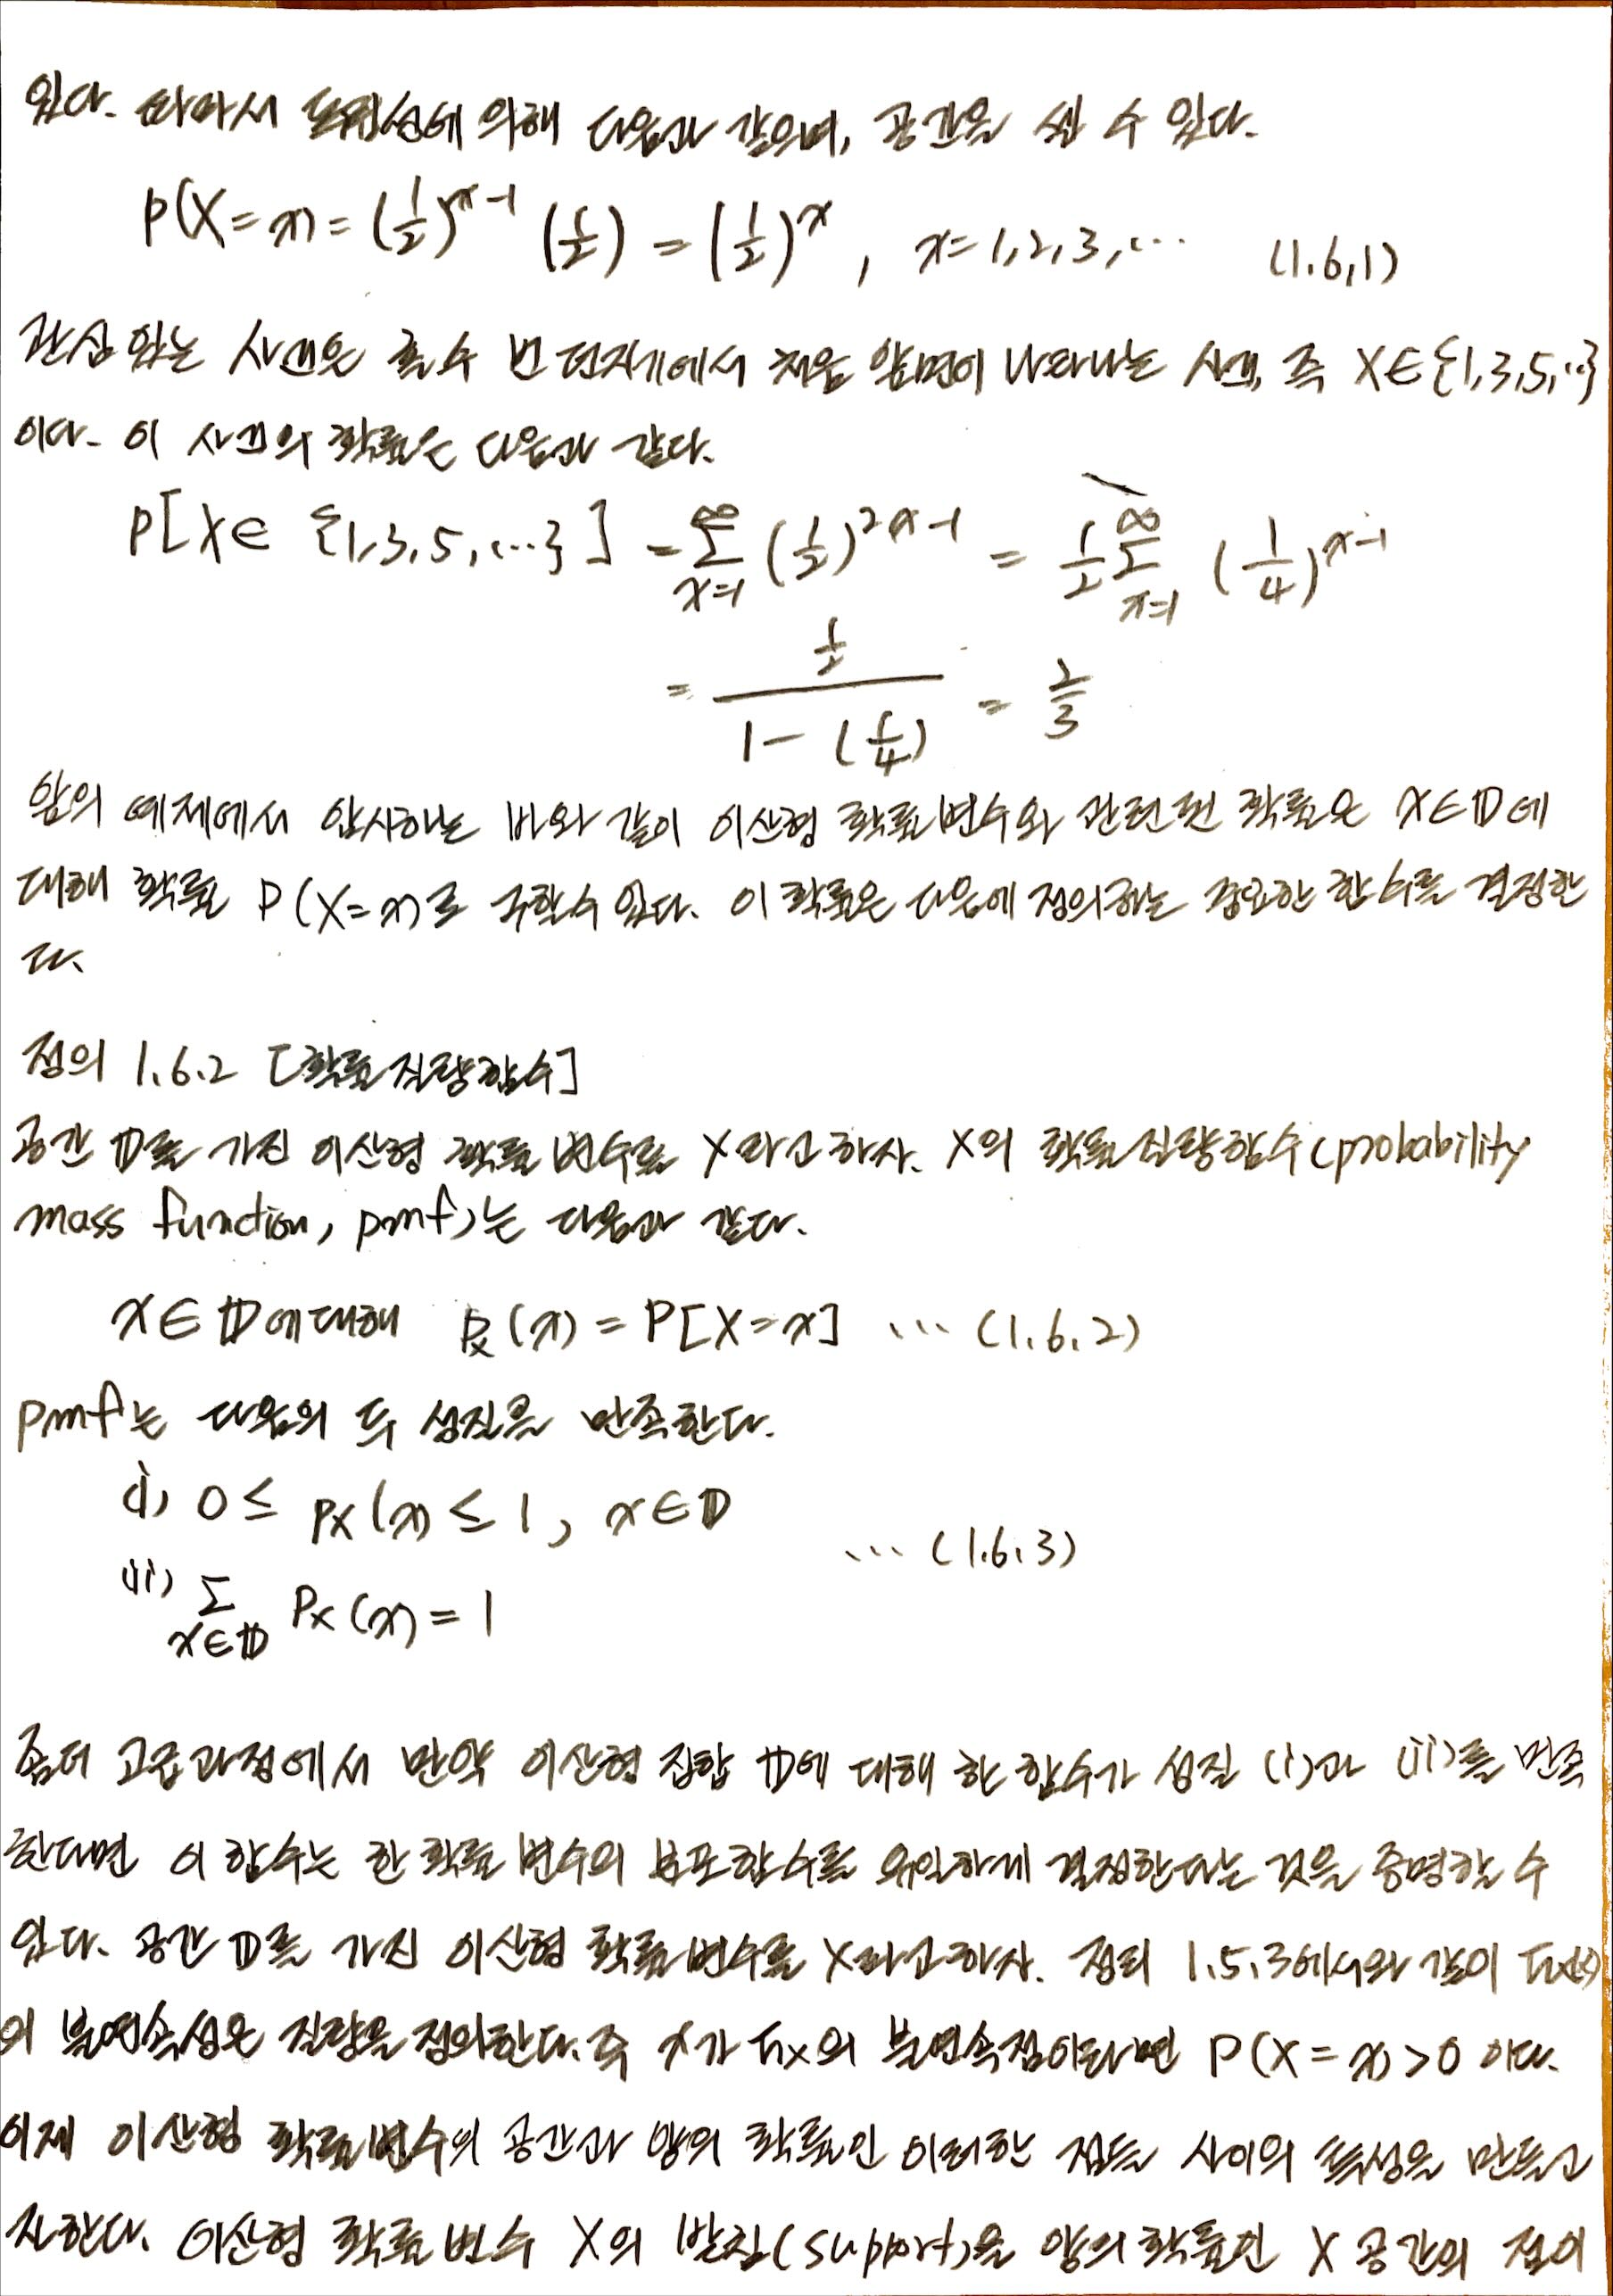 있다. 따라서 독립성에 의해 다음과 같으며, 공간을 셀 수 있다.
P(X=x) = (1/2)^{x-1} (1/2) = (1/2)^x , x=1,2,3,… (1.6.1)
관심 있는 사건은 홀수 번 던지기에서 처음 앞면이 나타나는 사건, 즉 X∈{1,3,5,…}
이다. 이 사건의 확률은 다음과 같다.
P[X∈ {1,3,5,…}] = ∑_{x=1}^{∞} (1/2)^{2x-1} = 1/2 ∑_{x=1}^{∞} (1/4)^{x-1}
= (1/2)/(1-(1/4)) = 2/3
앞의 예제에서 암시하는 바와 같이 이산형 확률변수와 관련된 확률은 x∈𝔻에
대해 확률 P(X=x)로 구할 수 있다. 이 확률은 다음에 정의하는 중요한 함수를 결정한
다.
정의 1.6.2 [확률질량함수]
공간 𝔻를 가진 이산형 확률변수를 X라고 하자. X의 확률질량함수(probability
mass function, pmf)는 다음과 같다.
x∈𝔻에 대해 p_X(x) = P[X=x] … (1.6.2)
pmf는 다음의 두 성질을 만족한다.
(i) 0 ≤ p_X(x) ≤ 1, x∈𝔻
… (1.6.3)
(ii) ∑_{x∈𝔻} p_X(x) = 1
좀더 고급과정에서 만약 이산형 집합 𝔻에 대해 한 함수가 성질 (i)과 (ii)를 만족
한다면 이 함수는 한 확률변수의 분포함수를 유일하게 결정한다는 것을 증명할 수
있다. 공간 𝔻를 가진 이산형 확률변수를 X라고 하자. 정리 1.5.3에서와 같이 F_X(x)
의 불연속성은 질량을 정의한다. 즉 x가 F_X의 불연속점이라면 P(X=x)>0 이다.
이제 이산형 확률변수의 공간과 양의 확률인 이러한 점들 사이의 특성을 만들고
자 한다. 이산형 확률변수 X의 받침(support)을 양의 확률인 X 공간의 점이